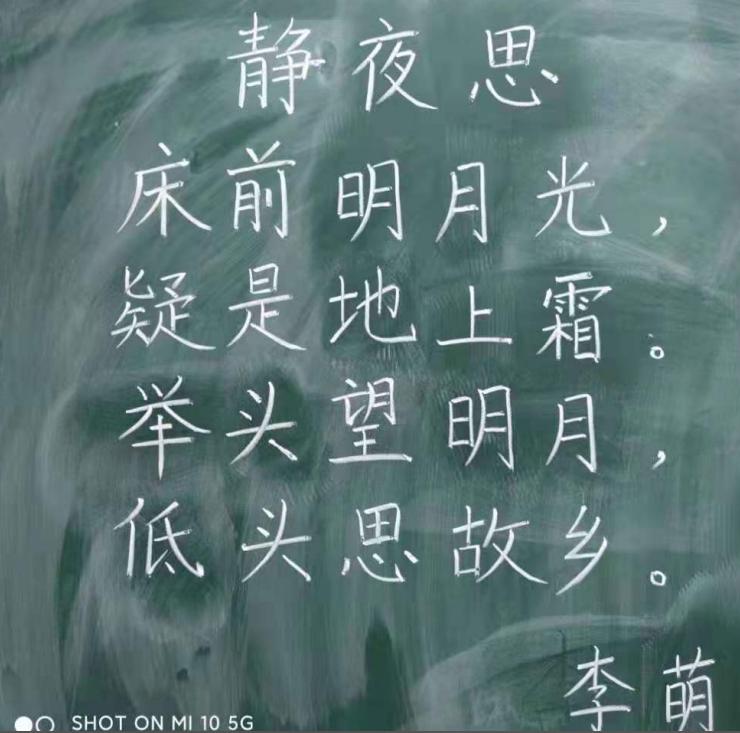 静夜思
床前明月光，
疑是地上霜。
举头望明月，
低头思故乡。
李萌
SHOT ON MI 10 5G